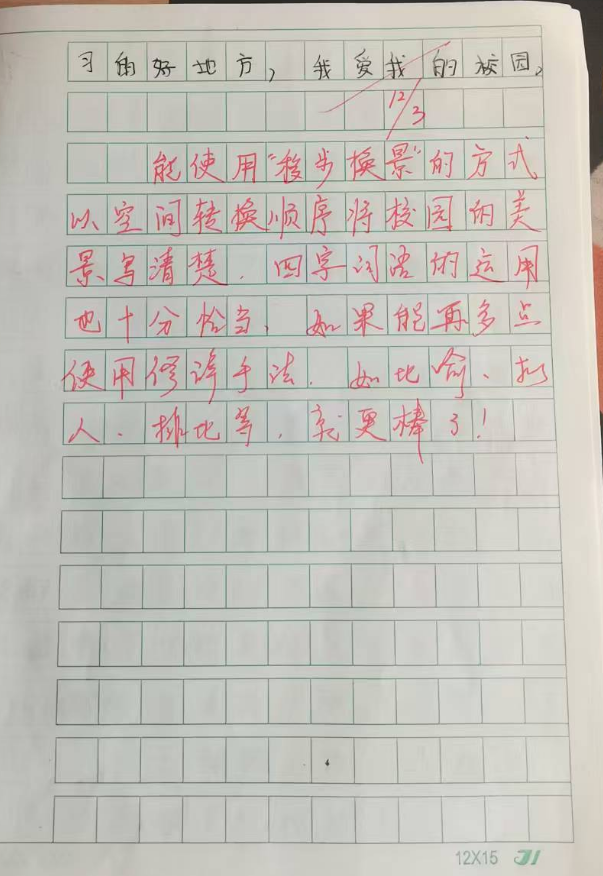 习的好地方，我爱我的校园。
12/3
能使用“移步换景”的方式
以空间转换顺序将校园的美
景写清楚．四字词语的运用
也十分恰当，如果能再多点
使用修辞手法．如比喻、拟
人、排比等，就更棒了！
12X15